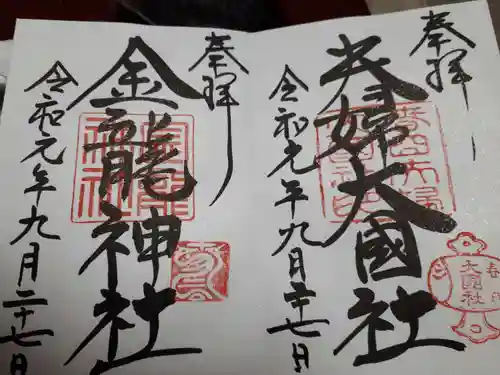 奉拝
夫婦大國社
令和元年九月二十七日
春日
大國社
奉拝
金龍神社
令和元年九月二十七日
金龍神社